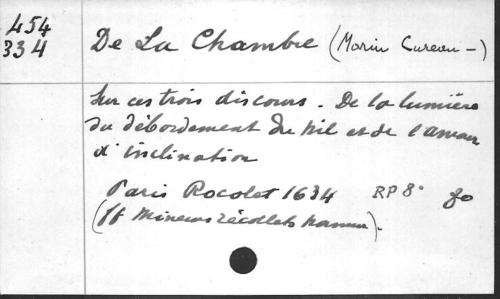 454
334
De La Chambre (Marin Cureau -)
Sur ces trois discours. De la lumière
du débordement du Nil et de l'amour
d'inclination
Paris Rocolet 1634 RP 8°
(ff mineurs récollets